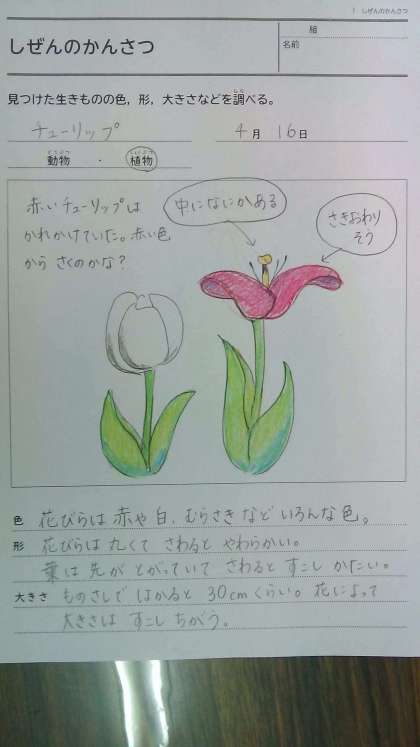 1 しぜんのかんさつ
しぜんのかんさつ
組
名前
見つけた生きものの色，形，大きさなどを調べる。
チューリップ 4月 16日
動物 ・ 植物
赤いチューリップは
かれかけていた。赤い色
から さくのかな？
中になにかある
さきおわり
そう
色 花びらは 赤や 白、むらさき など いろんな 色。
形 花びらは 丸くて さわると やわらかい。
葉は 先が とがっていて さわると すこし かたい。
大きさ ものさしで はかると 30cmくらい。花によって
大きさは すこし ちがう。